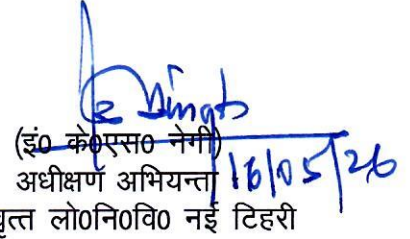 Singh
(इं0 के0एस0 नेगी)
अधीक्षण अभियन्ता
16/05/26
वृत्त लो0नि0वि0 नई टिहरी